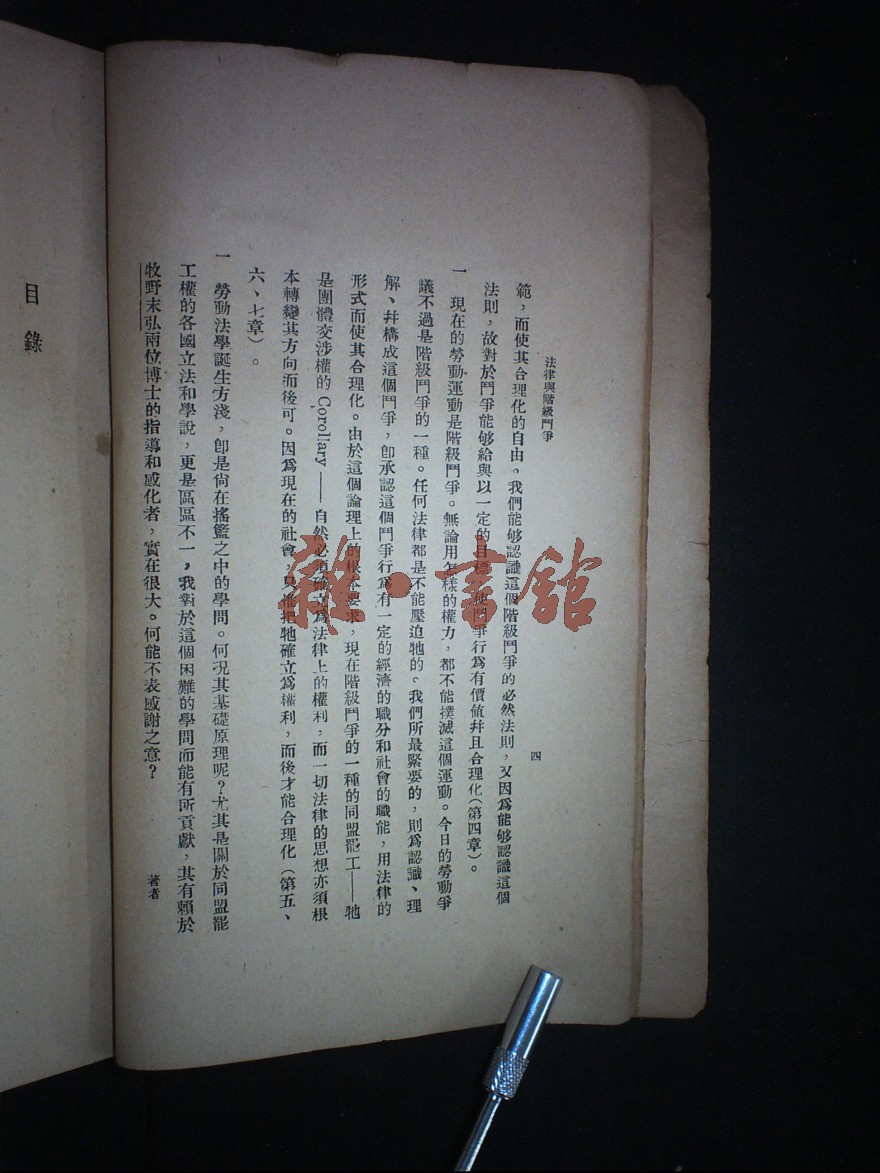 法律與階級鬥爭
四
範，而使其合理化的自由。我們能够認識這個階級鬥爭的必然法則，又因爲能够認識這個
法則，故對於鬥爭能够給與以一定的目標，使鬥爭行爲有價値幷且合理化（第四章）。
一　現在的勞動運動是階級鬥爭。無論用怎樣的權力，都不能撲滅這個運動。今日的勞動爭
議不過是階級鬥爭的一種。任何法律都是不能壓迫牠的。我們所最緊要的，則爲認識、理
解、幷構成這個鬥爭，卽承認這個鬥爭行爲有一定的經濟的職分和社會的職能，用法律的
形式而使其合理化。由於這個論理上的根本要求，現在階級鬥爭的一種的同盟罷工——牠
是團體交涉權的 Corollary——自然必須確立爲法律上的權利，而一切法律的思想亦須根
本轉變其方向而後可。因爲現在的社會，只進把牠確立爲權利，而後才能合理化（第五、
六、七章）。
一　勞動法學誕生方淺，卽是尙在搖籃之中的學問。何況其基礎原理呢？尤其是關於同盟罷
工權的各國立法和學說，更是區區不一，我對於這個困難的學問而能有所貢獻，其有賴於
牧野末弘兩位博士的指導和感化者，實在很大。何能不表感謝之意？
著者
目錄
雜·書館